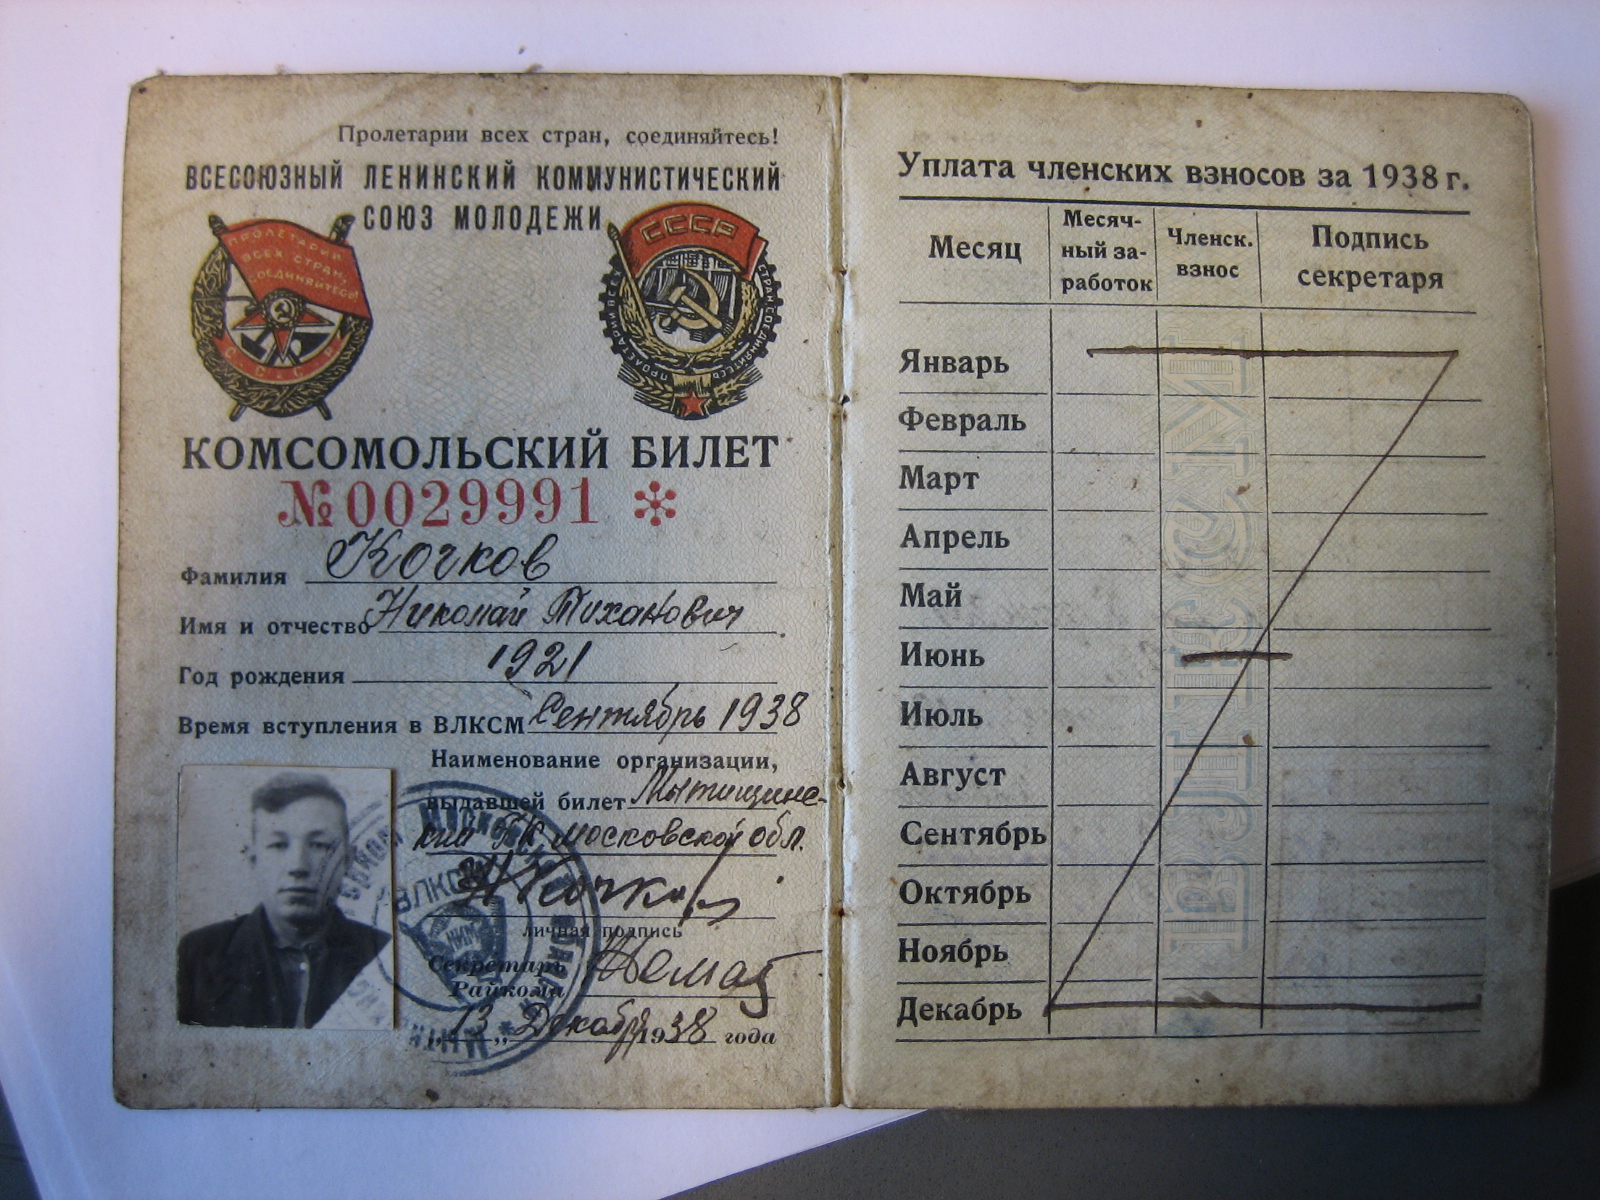 Пролетарии всех стран, соединяйтесь!
ВСЕСОЮЗНЫЙ ЛЕНИНСКИЙ КОММУНИСТИЧЕСКИЙ
СОЮЗ МОЛОДЕЖИ
ПРОЛЕТАРИИ
ВСЕХ СТРАН,
СОЕДИНЯЙТЕСЬ!
С.С.С.Р.
СССР
ПРОЛЕТАРИИ ВСЕХ СТРАН, СОЕДИНЯЙТЕСЬ
КОМСОМОЛЬСКИЙ БИЛЕТ
№ 0029991 *
Фамилия Кочков
Имя и отчество Николай Тиханович
Год рождения 1921
Время вступления в ВЛКСМ Сентябрь 1938
Наименование организации,
выдавшей билет Мытищинс-
кий ГК, Московской обл.
Н Кочков
личная подпись
Секретарь
Райкома
„13„ Декабря 1938 года
ВЛКСМ
Уплата членских взносов за 1938 г.
Месяц
Месяч-
ный за-
работок
Членск.
взнос
Подпись
секретаря
Январь
Февраль
Март
Апрель
Май
Июнь
Июль
Август
Сентябрь
Октябрь
Ноябрь
Декабрь
ВЛКСМ